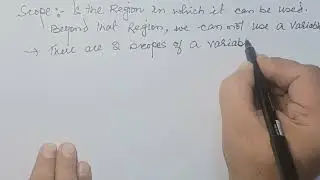 Scope:- is the Region in which it can be used.
Beyond that Region, we can not use a variable
→ There are 2 scopes of a variab